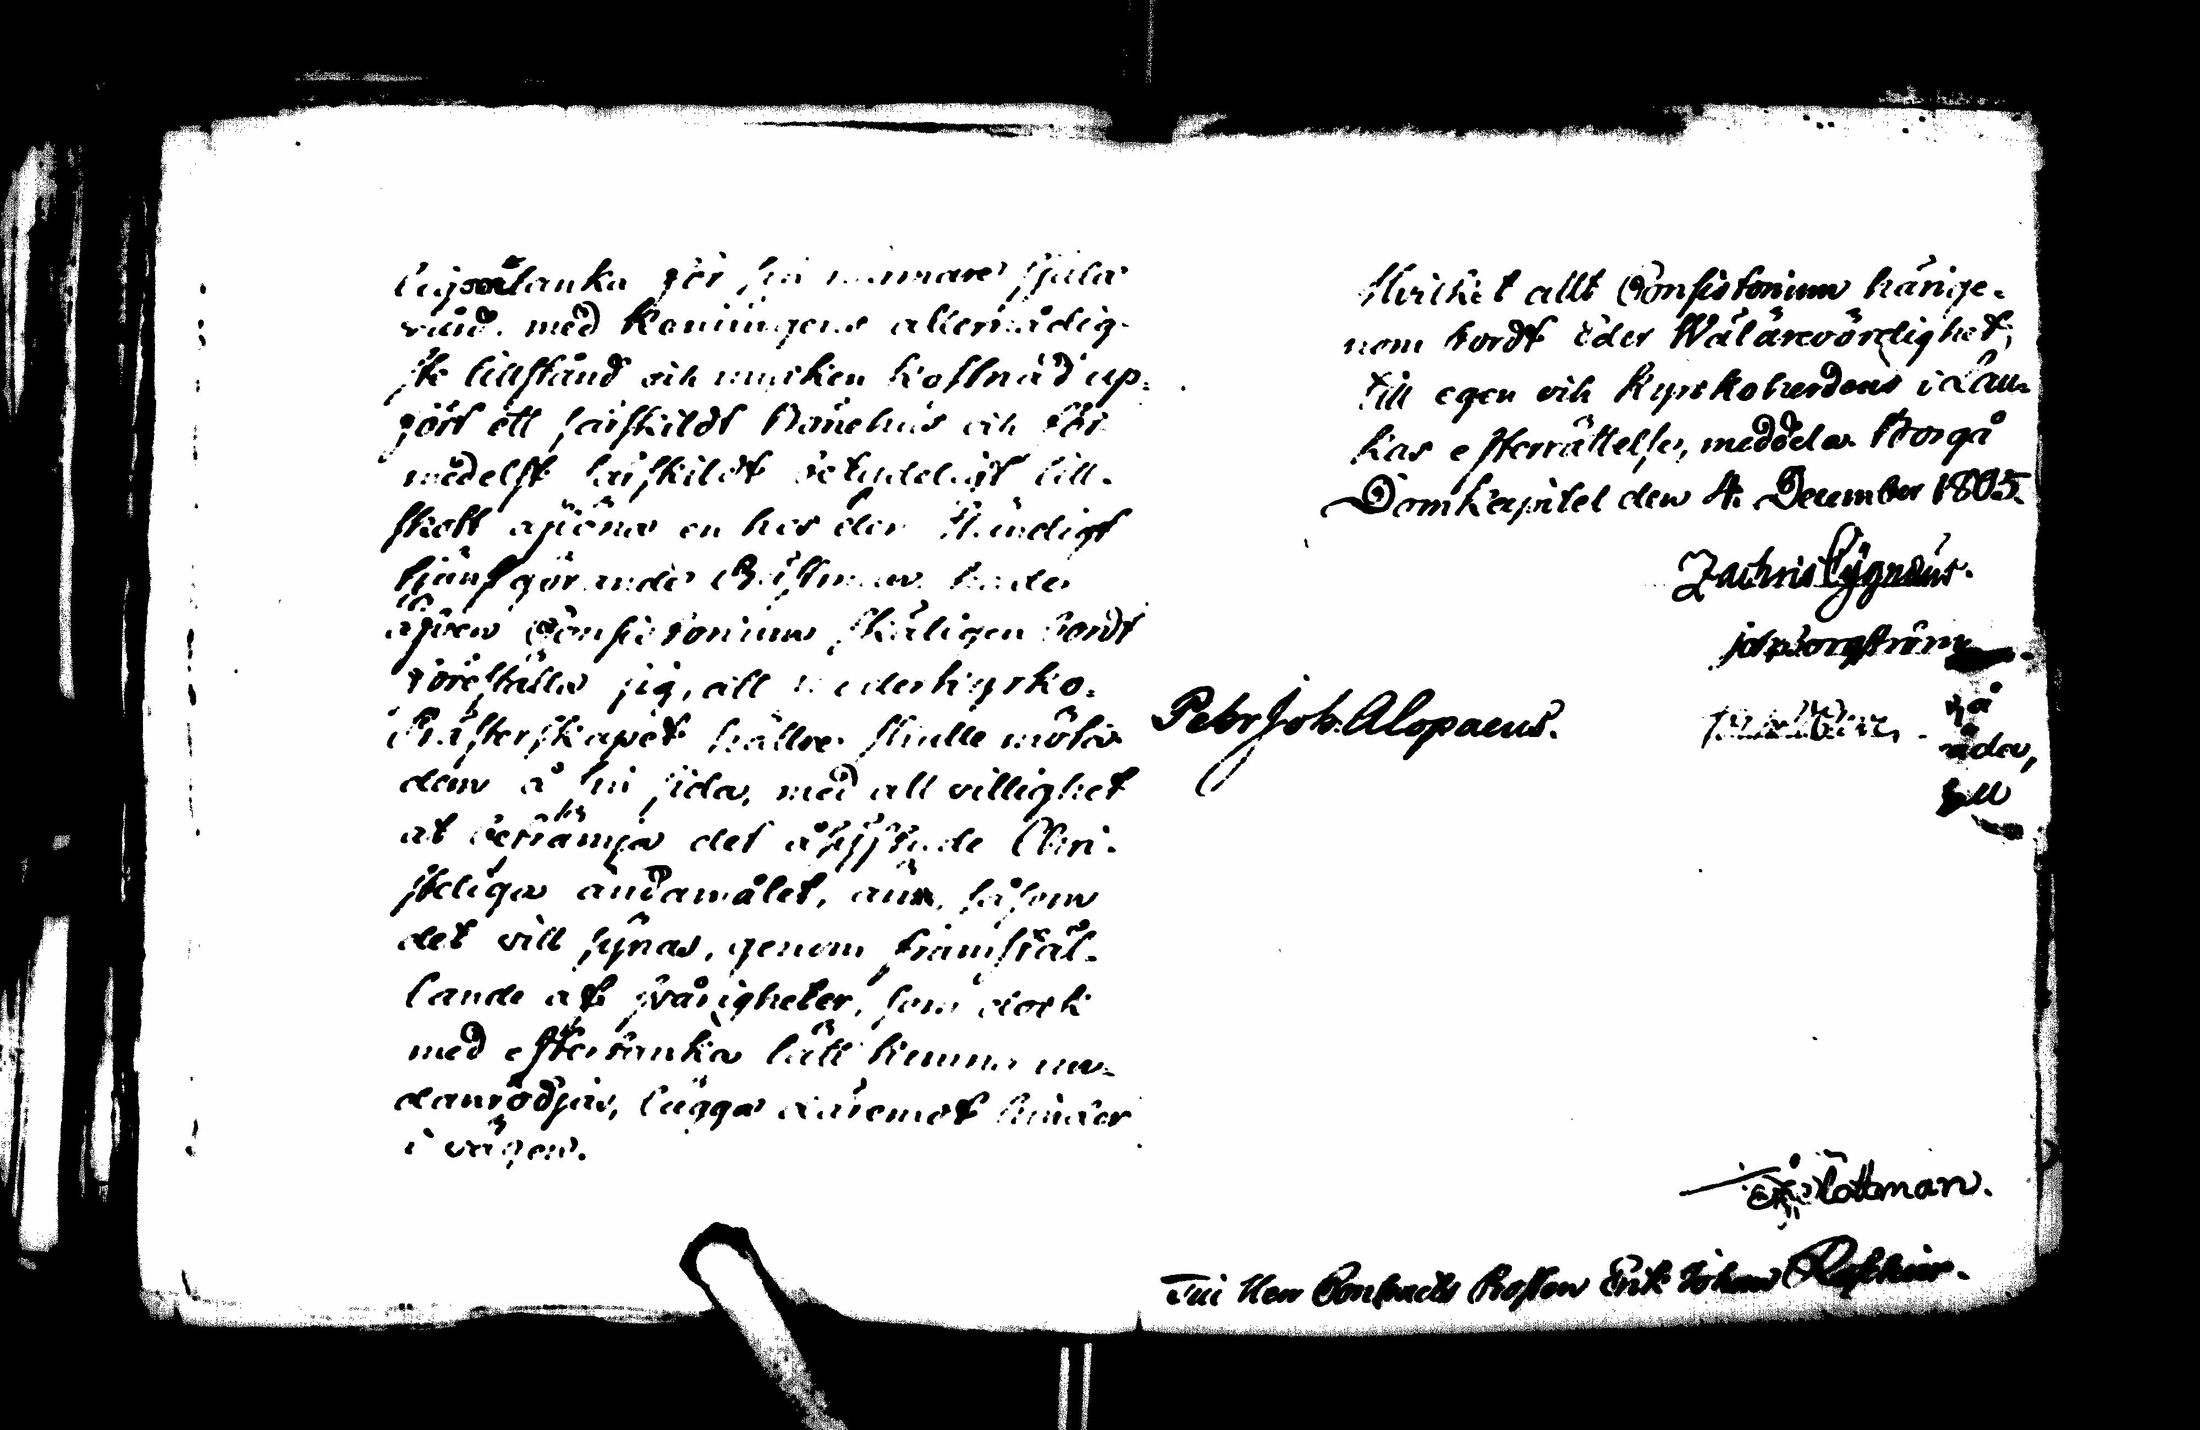 för sin närmare själa
vård. med Konungens allernådig-
ste tillstånd och mycken kostnad up-
gört ett särskildt Bönehus och för
medelst särskildt betydeligt till-
skott aflöna en hos dem ständigt
tjenstgörande Prästman. hade
äfven Consistorium skäligen bordt
föreställa sig, att moderkyrko-
Prästerskapet hällre skulle möta
dem å sin sida, med all villighet
at befrämja det åsyftade Chri-
steliga ändamålet, än, såsom
det vill synas, genom framstäl-
lande af svårigheter, som dock
med eftertanka lätt kunna un-
danrödjas, lägga däremot hinder
i vägen.
Hvilket allt Consistorium härige-
nom bordt Eder Wälärevördighet,
till egen och Kyrkoherdens i Lau-
kas efterrättelse, meddela. Borgå
DomKapitel den 4. December 1805.
Zachris Cygnæus.
Borgström
Petr Joh. Alopaeus.
på
Till Herr Contracts Prosten Erik Johan